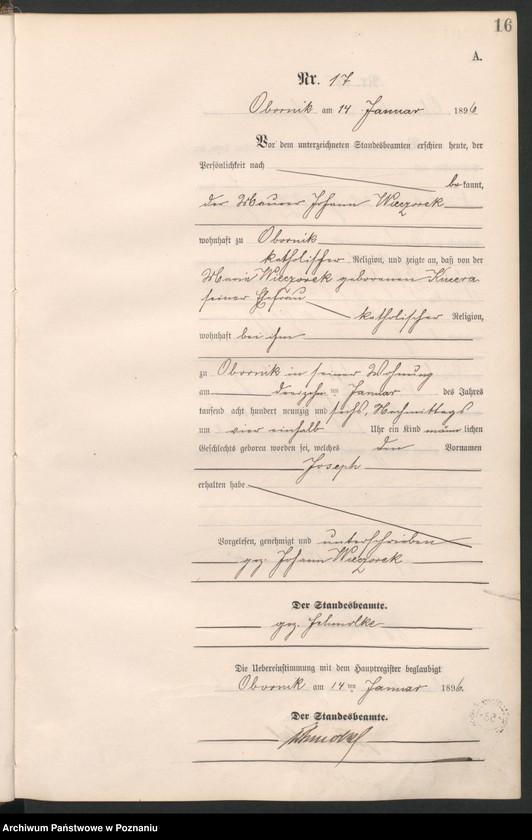 16
A.
Nr. 17
Obornik am 14 Januar 1896
Vor dem unterzeichneten Standesbeamten erschien heute, der
Persönlichkeit nach
be kannt,
der Maurer Johann Wieczorek
wohnhaft zu Obornik
katholischer Religion, und zeigte an, daß von der
Maria Wieczorek geborenen Kucera
seiner Ehefrau
katholischer Religion,
wohnhaft bei ihm
zu Obornik in seiner Wohnung
am dreizehn ten Januar des Jahres
tausend acht hundert neunzig und sechs, Nachmittags
um vier einhalb Uhr ein Kind männ lichen
Geschlechts geboren worden sei, welches den Vornamen
Joseph
erhalten habe
Vorgelesen, genehmigt und unterschrieben
gez. Johann Wieczorek
Der Standesbeamte.
gez. Schmolke
Die Uebereinstimmung mit dem Hauptregister beglaubigt
Obornik am 14 ten Januar 1896.
Der Standesbeamte.
Schmolke
Archiwum Państwowe w Poznaniu